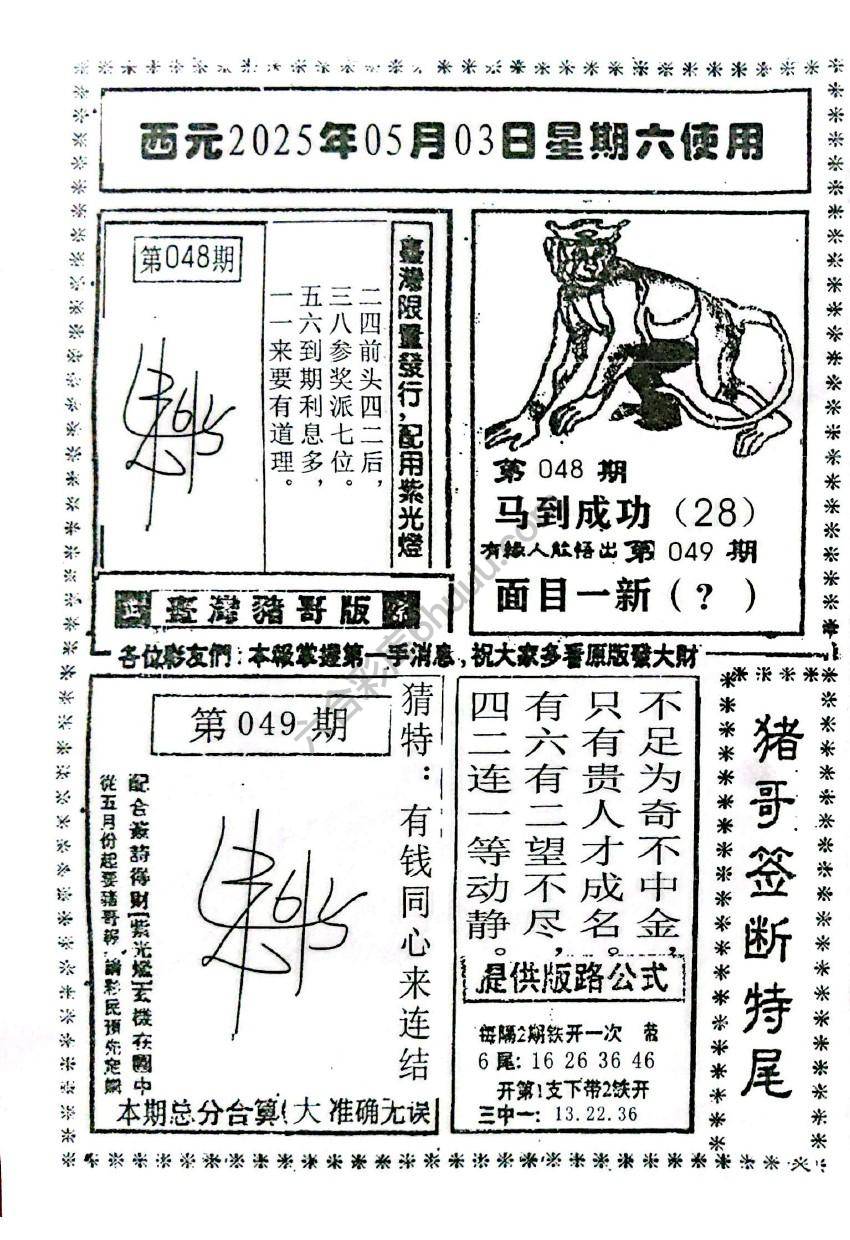 西元2025年05月03日星期六使用
第048期
二四前头四二后，
三八参奖派七位。
五六到期利息多，
一一来要有道理。
臺灣限量發行，配用紫光燈
正臺灣豬哥版
第 048 期
马到成功（28）
有緣人能悟出 第 049 期
面目一新（？）
各位彩友們：本報掌握第一手消息，祝大家多看原版發大財
第049期
猜特：有钱同心来连结
配合簽詩得財(紫光燈)玄機在圖中
從五月份起要豬哥報，請彩民預先定購
本期总分合算(大 准确无误
不足为奇不中金，
只有贵人才成名。
有六有二望不尽，
四二连一等动静。
提供版路公式
每隔2期铁开一次 带
6尾：16 26 36 46
开第1支下带2铁开
三中一：13.22.36
猪哥签断特尾
六合彩库6huuu.com